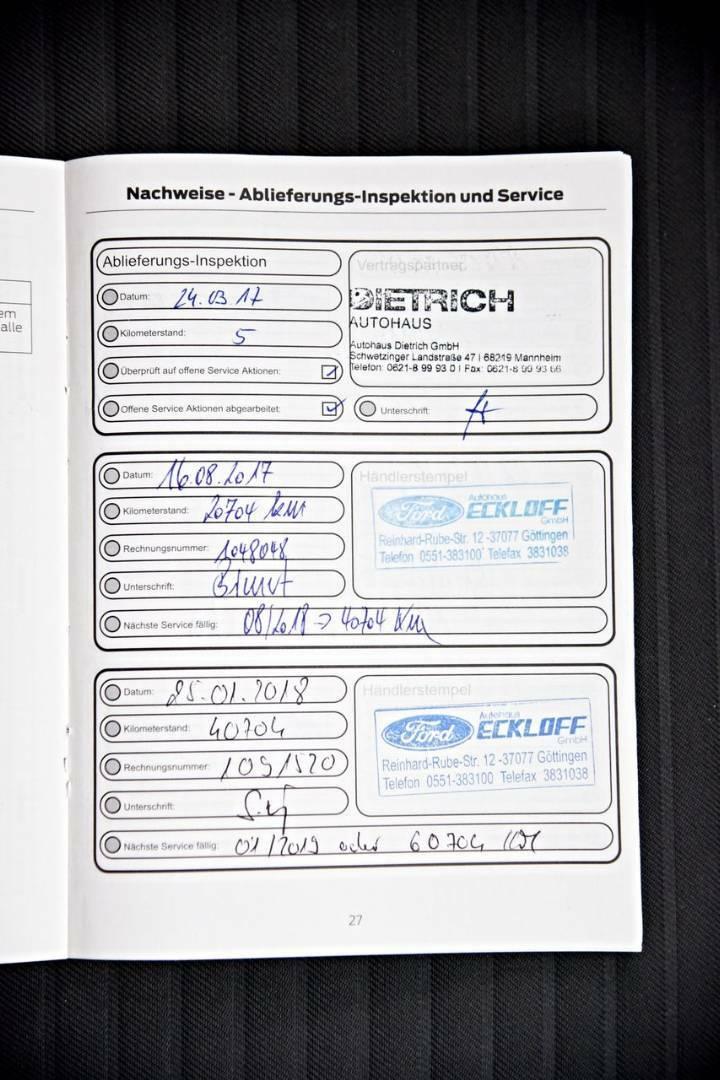 em
alle
Nachweise - Ablieferungs-Inspektion und Service
Ablieferungs-Inspektion
Datum: 24.03.17
Kilometerstand: 5
Überprüft auf offene Service Aktionen:
Offene Service Aktionen abgearbeitet:
Vertragspartner
DIETRICH
AUTOHAUS
Autohaus Dietrich GmbH
Schwetzinger Landstraße 47 | 68219 Mannheim
Telefon: 0621-8 99 93 0 | Fax: 0621-8 99 93 66
Unterschrift:
Datum: 16.08.2017
Kilometerstand: 20704 km
Rechnungsnummer: 1048048
Unterschrift:
Nächste Service fällig: 08/2018 → 40704 km
Händlerstempel
Ford
Autohaus
ECKLOFF
GmbH
Reinhard-Rube-Str. 12 -37077 Göttingen
Telefon 0551-383100 Telefax 3831038
Datum: 25.01.2018
Kilometerstand: 40704
Rechnungsnummer: 1091520
Unterschrift:
Nächste Service fällig: 01/2019 oder 60704 KM
Händlerstempel
Ford
Autohaus
ECKLOFF
GmbH
Reinhard-Rube-Str. 12 -37077 Göttingen
Telefon 0551-383100 Telefax 3831038
27